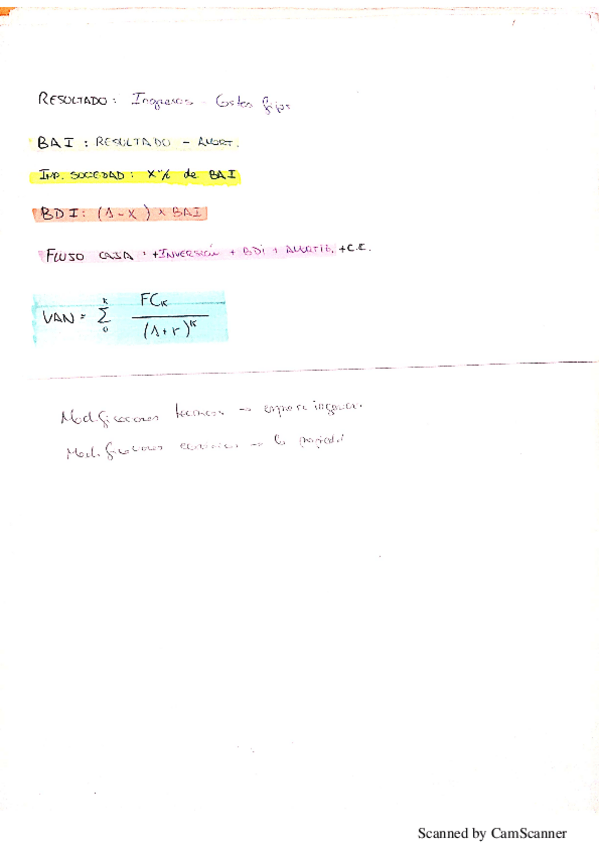 RESULTADO: Ingresos - Costes fijos
BAI: RESULTADO - AMORT.
IMP. SOCIEDAD: X% de BAI
BDI: (1-X) × BAI
FLUJO CAJA: +INVERSIÓN + BDI + AMORTIZ. +C.E.
VAN = Σ k 0 FCk / (1+r)^k
Modificaciones técnicas →
Modificaciones → la propiedad
Scanned by CamScanner